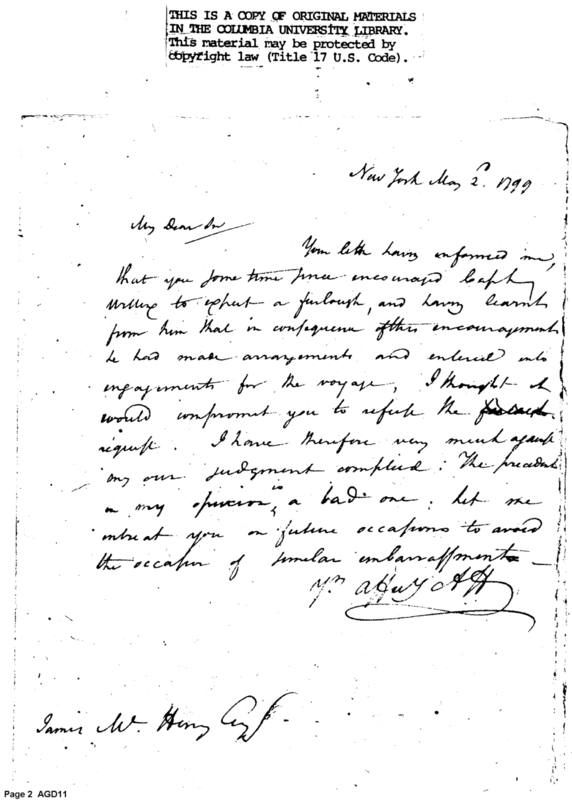 THIS IS A COPY OF ORIGINAL MATERIALS
IN THE COLUMBIA UNIVERSITY LIBRARY.
This material may be protected by
copyright law (Title 17 U.S. Code).
New York May 2d. 1799
My Dear Sir
Your letter having informed me,
that you some time since encouraged Capt
to expect a furlough, and having learnt
from him that in consequence of this encouragement
he had made arrangements and entered into
engagements for the voyage, I thought it
would compromit you to refuse the
request. I have therefore very much against
my own judgment complied: The precedent
in my opinion is a bad one. Let me
intreat you on future occasions to avoid
the occasion of similar embarrassments—
Yrs. Affecly AH
James Mc. Henry Esqr.
Page 2 AGD11